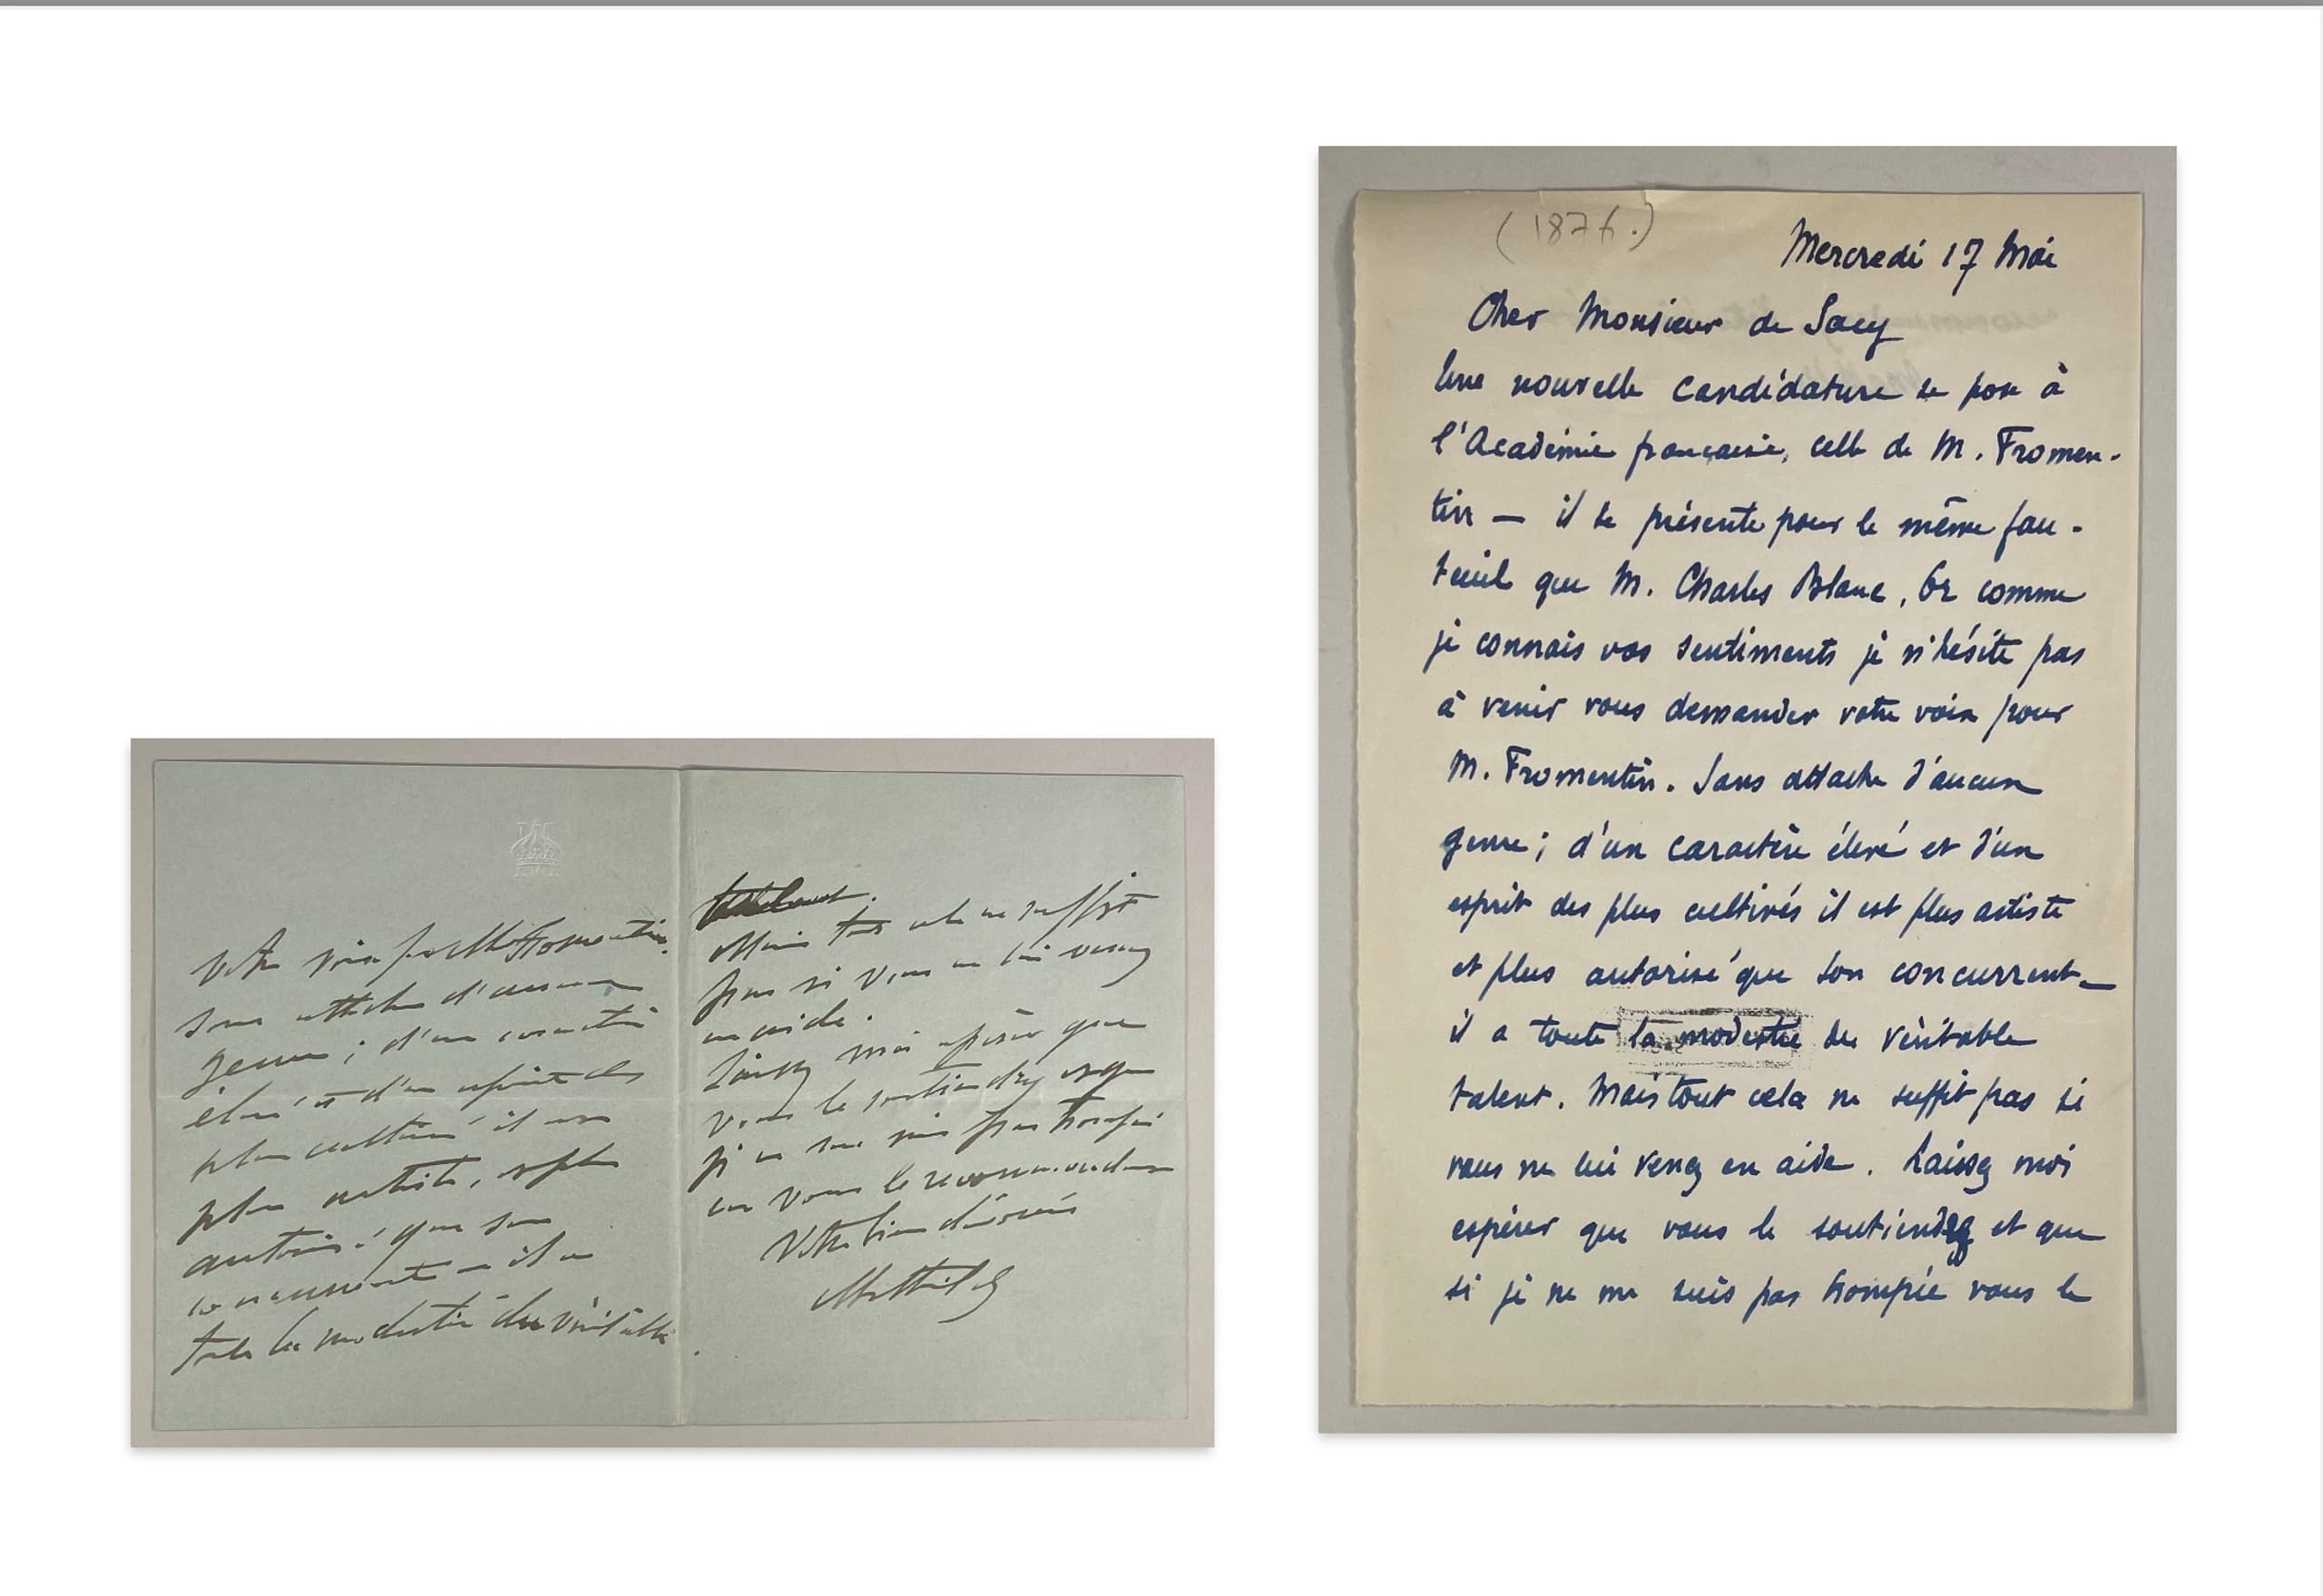 votre voix pour M. Fromentin.
Sans attache d'aucun
genre ; d'un caractère
élevé et d'un esprit des
plus cultivé il est
plus artiste, et plus
autorisé que son
concurrent — il a
toute la modestie du véritable
Mais tout cela ne suffit
pas si vous ne lui venez
en aide.
Laissez moi espérer que
vous le soutiendrez et que
je ne me suis pas trompée
en vous le recommandant
Votre bien dévouée
Mathilde
(1876.)
Mercredi 17 Mai
Cher Monsieur de Sacy
Une nouvelle candidature se pose à
l'Académie française, celle de M. Fromen-
tin — il se présente pour le même fau-
teuil que M. Charles Blanc, Or comme
je connais vos sentiments je n'hésite pas
à venir vous demander votre voix pour
M. Fromentin. Sans attache d'aucun
genre ; d'un caractère élevé et d'un
esprit des plus cultivés il est plus artiste
et plus autorisé que son concurrent —
il a toute la modestie du véritable
talent. Mais tout cela ne suffit pas si
vous ne lui venez en aide. Laissez moi
espérer que vous le soutiendrez et que
si je ne me suis pas trompée vous le